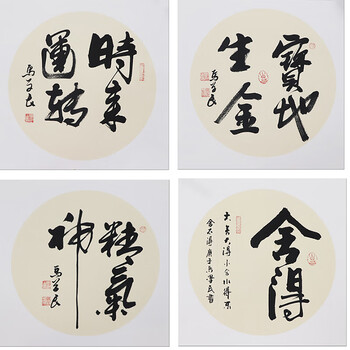 時来
運轉
馬学良
寶地
生金
馬学良
精氣
神
馬学良
舍得
大舍大得小舍小得不
舍不得庚子馬学良書